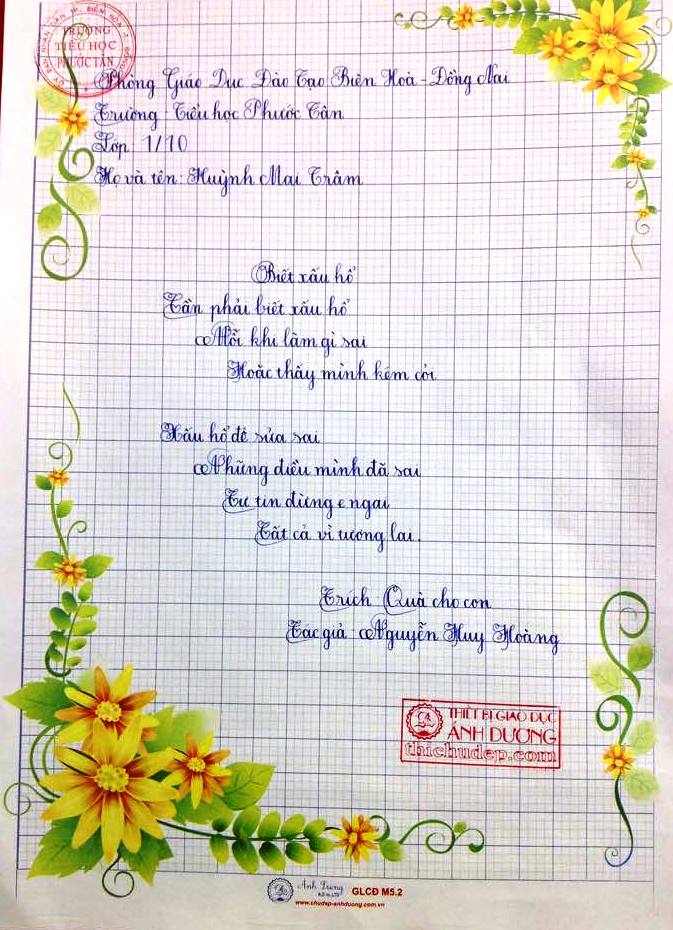 TRƯỜNG
TIỂU HỌC
PHƯỚC TÂN
Phòng Giáo Dục Đào Tạo Biên Hoà - Đồng Nai
Trường Tiểu học Phước Tân
Lớp 1/10
Họ và tên: Huỳnh Mai Trâm
Biết xấu hổ
Cần phải biết xấu hổ
Mỗi khi làm gì sai
Hoặc thấy mình kém cỏi
Xấu hổ để sửa sai
Những điều mình đã sai
Tự tin đừng e ngại
Tất cả vì tương lai.
Trích Quà cho con
Tác giả: Nguyễn Huy Hoàng
THIẾT BỊ GIÁO DỤC
ÁNH DƯƠNG
thichudep.com
Ánh Dương
GLCĐ M5.2
www.chudep-anhduong.com.vn